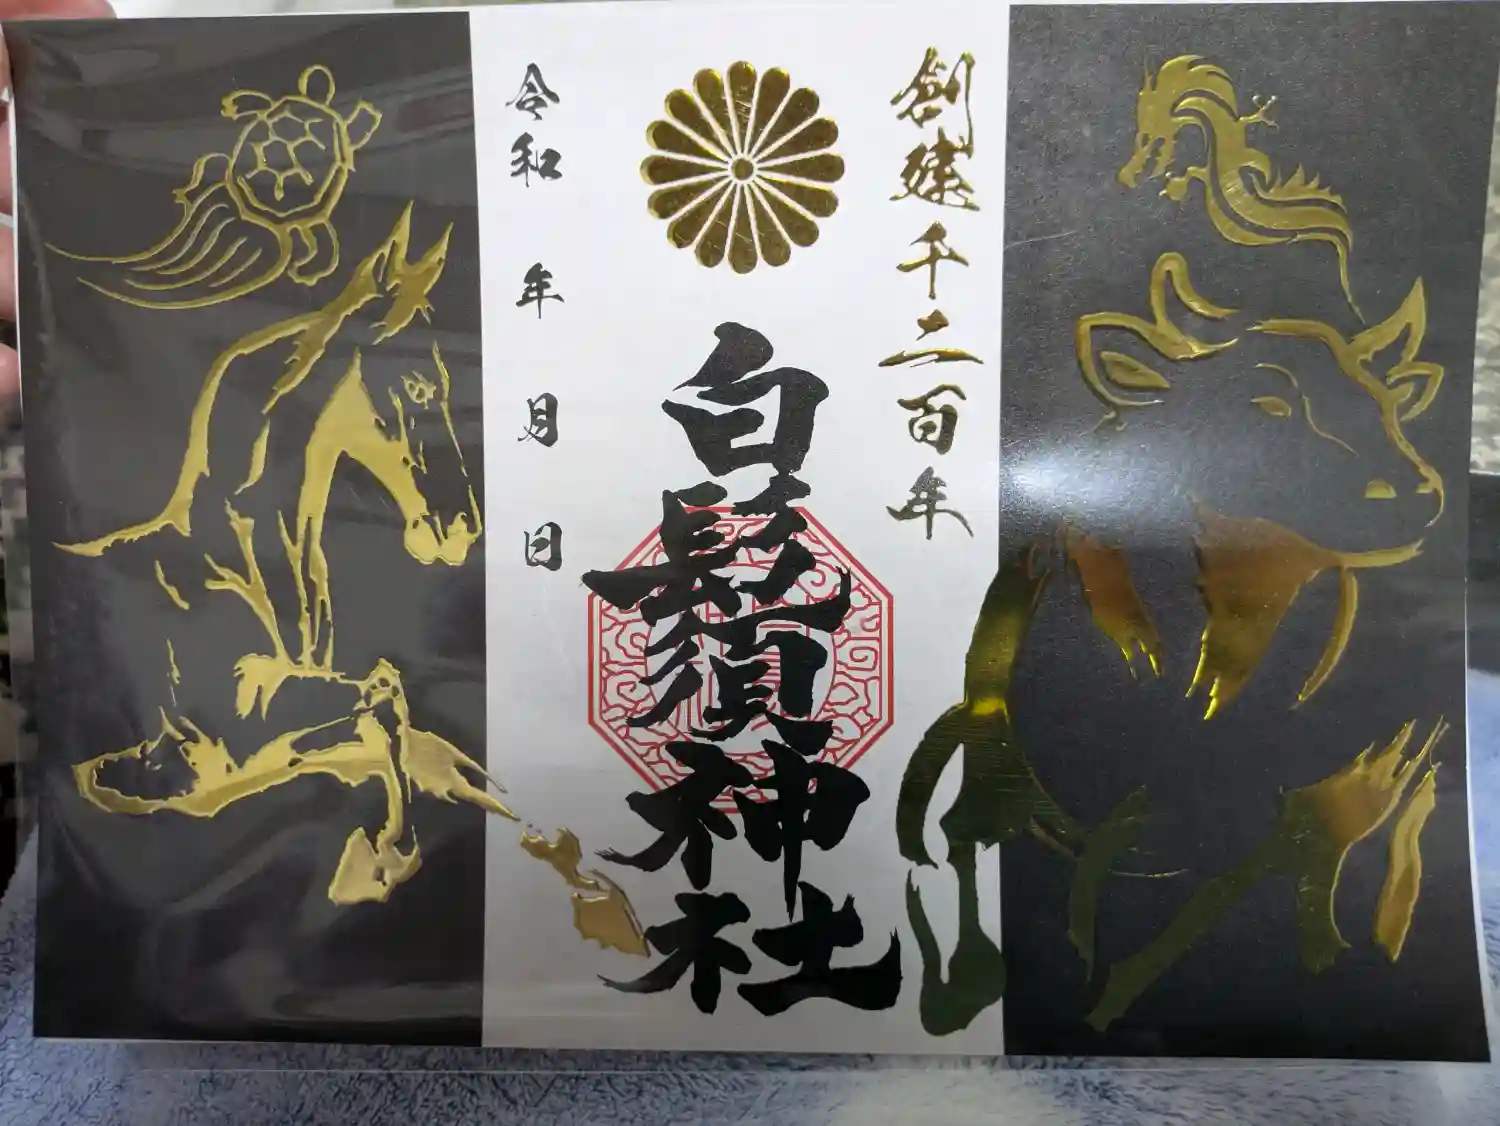 創建千二百年
白鬚神社
令和 年 月 日